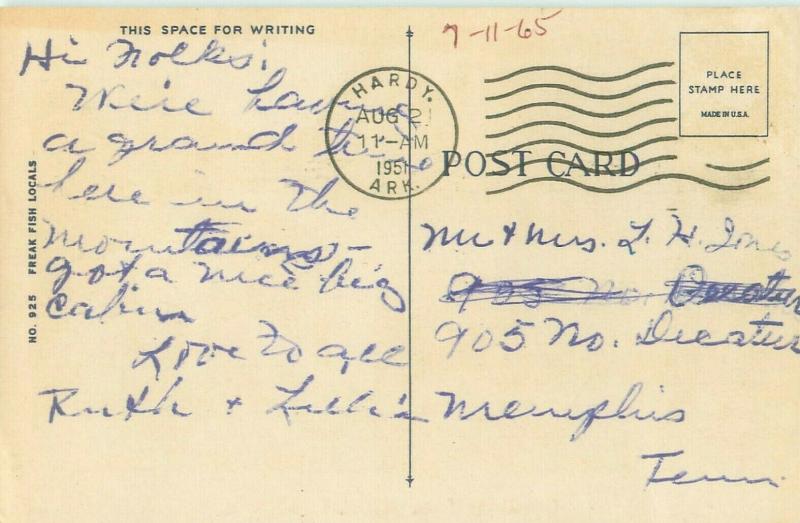 THIS SPACE FOR WRITING
Hi Folks;
We're having
a grand time
here in the
mountains -
got a nice big
cabin
Love to all
Ruth +
NO. 925 FREAK FISH LOCALS
7-11-65
HARDY.
AUG 21
11-AM
1951
ARK.
PLACE
STAMP HERE
MADE IN U.S.A.
POST CARD
Mr + Mrs. L. H. Jones
905 No. Decatur
905 No. Decatur
Memphis
Tenn